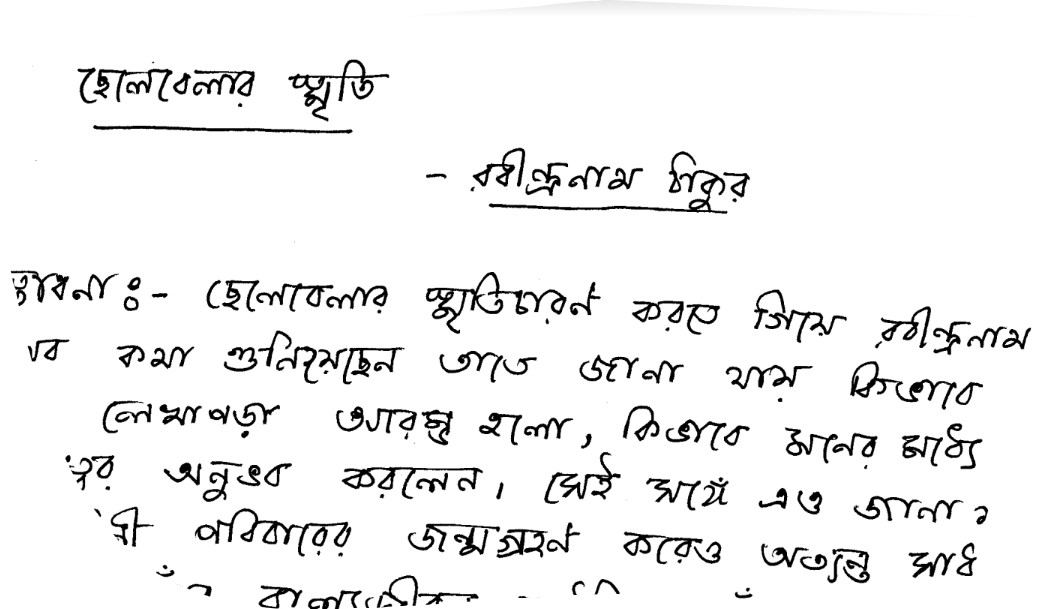 ছেলেবেলার স্মৃতি
- রবীন্দ্রনাথ ঠাকুর
ছেলেবেলার স্মৃতিচারণ করতে গিয়ে রবীন্দ্রনাথ
কথা শুনিয়েছেন তাতে জানা যায় কিভাবে
লেখাপড়া আরম্ভ হলো, কিভাবে মনের মধ্যে
অনুভব করলেন। সেই সঙ্গে এও জানা
পরিবারের জন্মগ্রহণ করেও অত্যন্ত সাধ